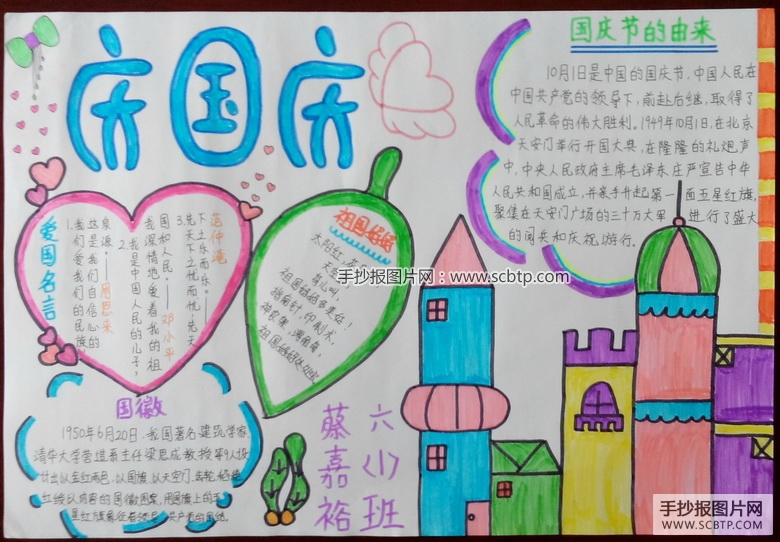 庆国庆
国庆节的由来
10月1日是中国的国庆节,中国人民在
中国共产党的领导下,前赴后继,取得了
人民革命的伟大胜利。1949年10月1日,在北京
天安门举行开国大典,在隆隆的礼炮声
中,中央人民政府主席毛泽东庄严宣告中华
人民共和国成立,并亲手升起第一面五星红旗,
聚集在天安门广场的三十万大军 进行了盛大
的阅兵和庆祝游行。
爱国名言
1.我们爱我们的民族,
这是我们自信心的
泉源。——周恩来
2.我是中国人民的儿子,
我深情地爱着我的祖
国和人民。——邓小平
3.先天下之忧而忧,后天
下之乐而乐。——范仲淹
祖国妈妈
太阳红,
祖国妈妈多美好!
指南针,印刷术,
手抄报图片网:www.scbtp.com
国徽
1950年6月20日,我国著名建筑学家,
清华大学营建系主任梁思成教授率9人设
六(1)班
蔡嘉裕
手抄报图片网
WWW.SCBTP.COM